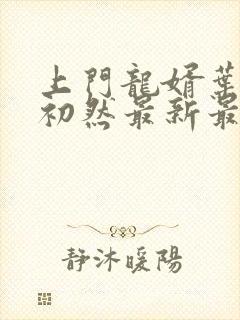 上門龍婿葉
初然最新最
静沐暖陽